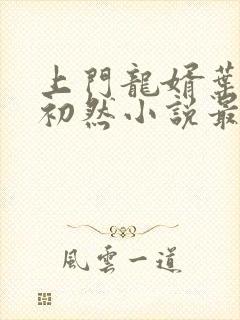 上門龍婿葉
初然小説最
風雲一道